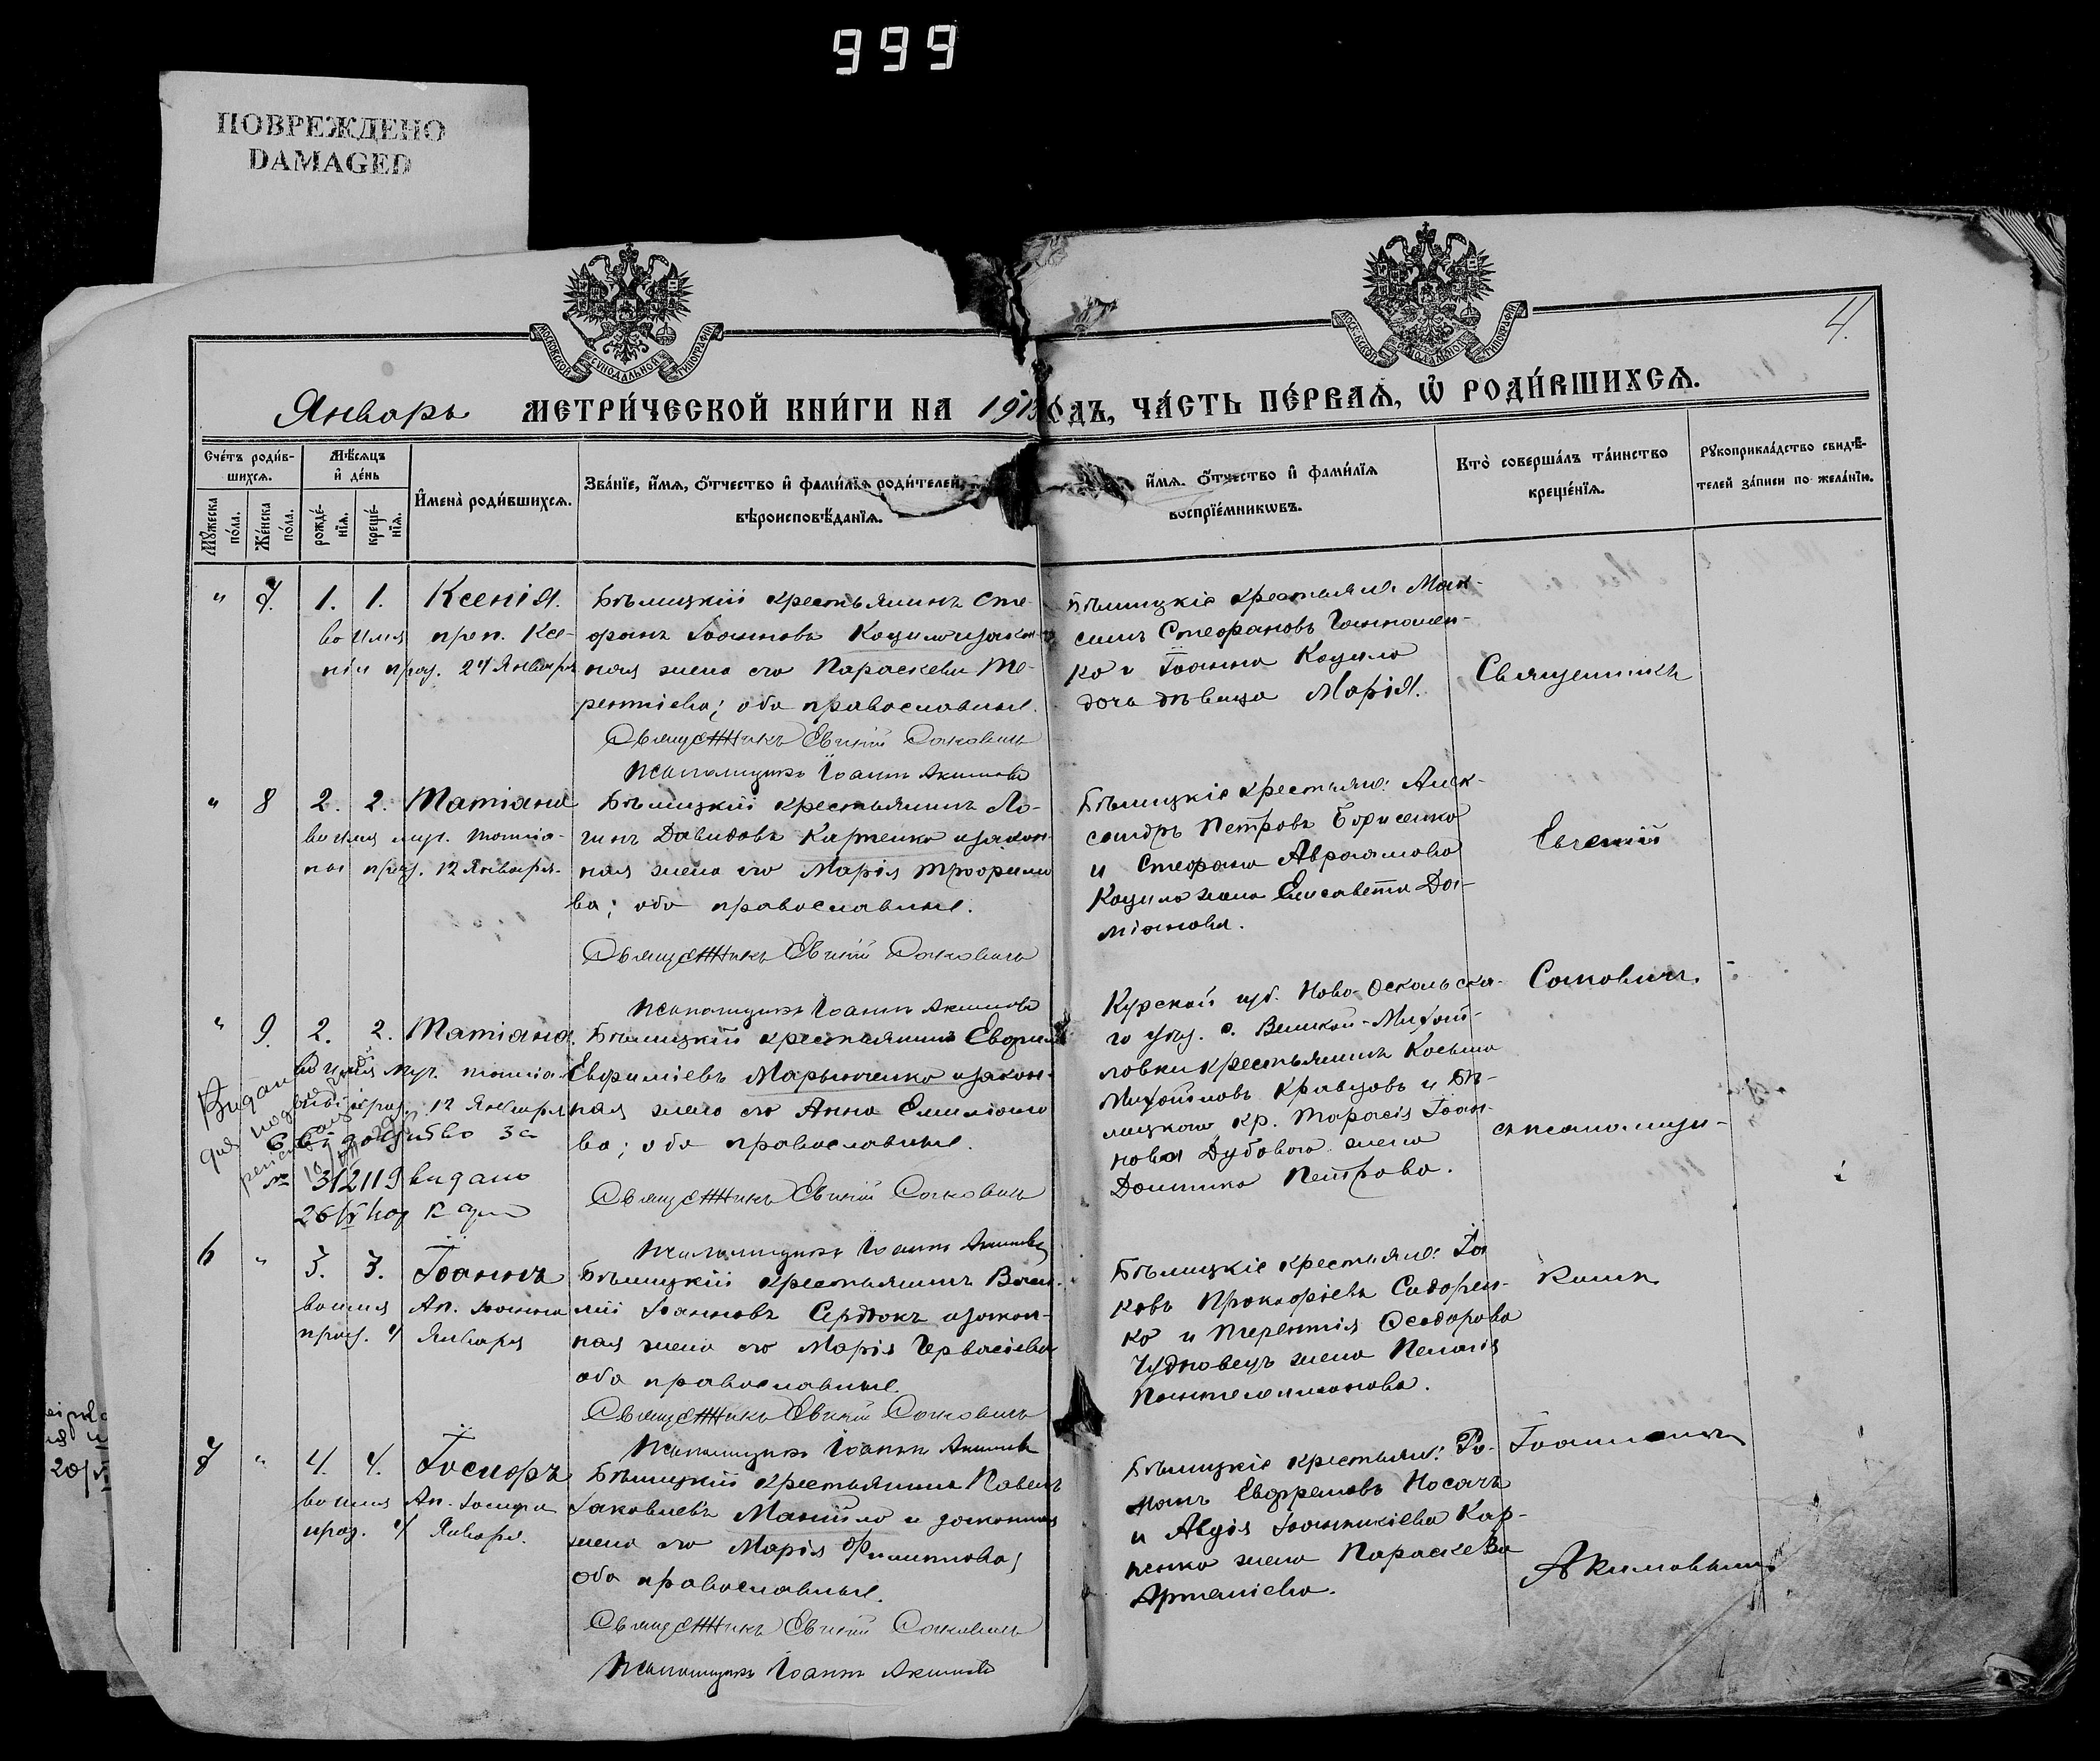 999
ПОВРЕЖДЕНО
DAMAGED
МОСКОВСКОЙ СѴНОДАЛЬНОЙ ТИПОГРАФІИ
МОСКОВСКОЙ СѴНОДАЛЬНОЙ ТИПОГРАФІИ
4.
Январь МЕТРИ́ЧЕСКОЙ КНИ́ГИ НА 1913 ГОДЪ, ЧА́СТЬ ПЕ́РВАѦ, Ѿ РОДИ́ВШИХСѦ.
Счéтъ роди́вшихсѧ.
Мꙋ́жеска по́ла.
Же́нска по́ла.
Мѣ́сѧцъ и҆ де́нь
рожде́нїѧ.
креще́нїѧ.
И҆мена̀ роди́вшихсѧ.
Зва́нїе, и҆́мѧ, ѻ҆́тчество и҆ фами́лїѧ роди́телей,
вѣроисповѣ́данїѧ.
и҆́мѧ, ѻ҆́тчество и҆ фами́лїѧ
воспрїе́мникѡвъ.
Кто̀ соверша́лъ та́инство
креще́нїѧ.
Рꙋкоприкла́дство свидѣ́-
телей за́писи по жела́нїю.
" 7. 1. 1. Ксенія.
во имя преп. Ксе-
ніи праз. 24 Января
Бѣлицкій крестьянинъ Сте-
фанъ Іоанновъ Кацило и закон-
ная жена его Параскева Те-
рентіева; оба православные.
Священникъ Евгеній Сахновичъ
Псаломщикъ Іоаннъ Акимовъ
Бѣлицкіе крестьяне: Мак-
симъ Стефановъ
ко и Іоанна Кацило
дочь дѣвица Марія.
Священникъ
" 8 2. 2. Татіана
во имя муч. Татіа-
ны праз. 12 Января.
Бѣлицкій крестьянинъ Ло-
гинъ Давидовъ Карпенко и закон-
ная жена его Марія Трофимо-
ва; оба православные.
Священникъ Евгеній Сахновичъ
Псаломщикъ Іоаннъ Акимовъ
Бѣлицкіе крестьяне: Алек-
сандръ Петровъ Борисенко
и Стефана Авраамова
Кацило жена Елисавета Да-
міанова.
Евгеній
" 9. 2. 2. Татіана.
во имя муч. Татіа-
ны праз. 12 Января
за
№ 312119 видано
Бѣлицкій крестьянинъ Евфимій
Евфиміевъ Марынченко и закон-
ная жена его Анна Емиліано-
ва; оба православные.
Священникъ Евгеній Сахновичъ
Псаломщикъ Іоаннъ Акимовъ
Курской губ. Ново-Оскольска-
го уѣз. с. Великой-Михай-
ловки крестьянинъ Косьма
Михайловъ Кравцовъ и Бѣ-
лицкаго кр. Тарасія Іоан-
нова Дубового жена
Домника Петрова.
Сахновичъ
съ псаломщи-
6 " 3. 3. Іоаннъ
во имя Ап. Іоанна
праз. 4 Января
Бѣлицкій крестьянинъ Васи-
лій Іоанновъ Сердюкъ и закон-
ная жена его Марія Гервасіева
оба православные.
Священникъ Евгеній Сахновичъ
Псаломщикъ Іоаннъ Акимовъ
Бѣлицкіе крестьяне: Іа-
ковъ Прокофіевъ Сидорен-
ко и Терентія Ѳеодорова
Чудновецъ жена Пелагія
Пантелеимонова.
комъ
7 " 4. 4. Іосифъ
во имя Ап. Іосифа
праз. 4 Января.
Бѣлицкій крестьянинъ Павелъ
Іаковлевъ Манйло и законная
жена его Марія Филиппова;
оба православные.
Священникъ Евгеній Сахновичъ
Псаломщикъ Іоаннъ Акимовъ
Бѣлицкіе крестьяне: Ро-
манъ Евфремовъ Носачъ
и Авдія Іоанникіева Кар-
пенко жена Параскева
Артеміева.
Іоанномъ
Акимовымъ